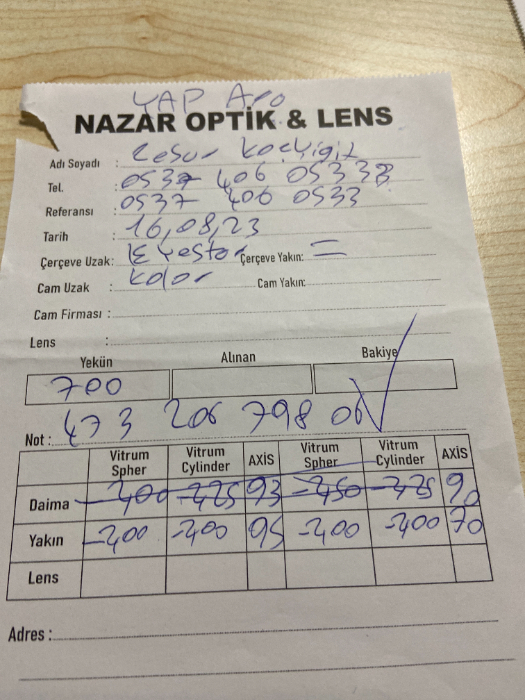 YAP Ara
NAZAR OPTİK & LENS
Adı Soyadı : Cesur Koçyiğit
Tel. : 0537 406 0533
Referansı : 0537 406 0533
Tarih : 16,08,23
Çerçeve Uzak: Çerçeve Yakın: =
Cam Uzak : Kolor Cam Yakın:
Cam Firması :
Lens :
Yekün Alınan Bakiye
700
Not : 473 206 798 06
Vitrum Spher Vitrum Cylinder AXİS Vitrum Spher Vitrum Cylinder AXİS
Daima -400 -225 93 -450 -225 90
Yakın -200 -200 95 -200 -200 70
Lens
Adres :